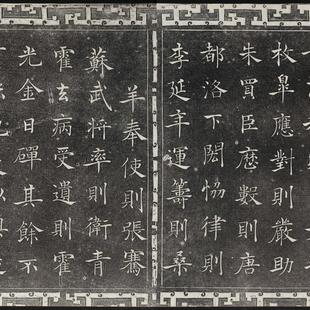 枚皐應對則嚴助
朱買臣厯數則唐
都洛下閎恊律則
李延年運籌則桑
羊奉使則張騫
蘇武將率則衛青
霍去病受遺則霍
光金日磾其餘不